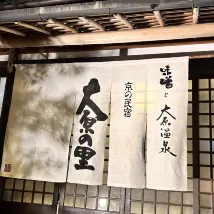 味噌と大原温泉
京の民宿
大原の里